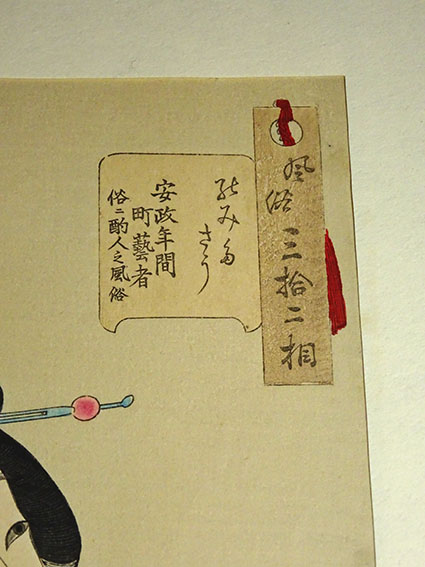 風俗三拾二相
のみたさう
安政年間
町藝者
俗ニ酌人之風俗